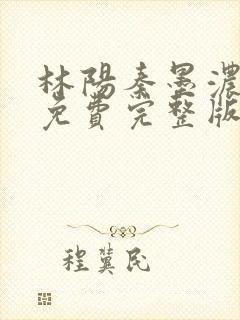 林陽秦墨濃
免費完整版
程冀民